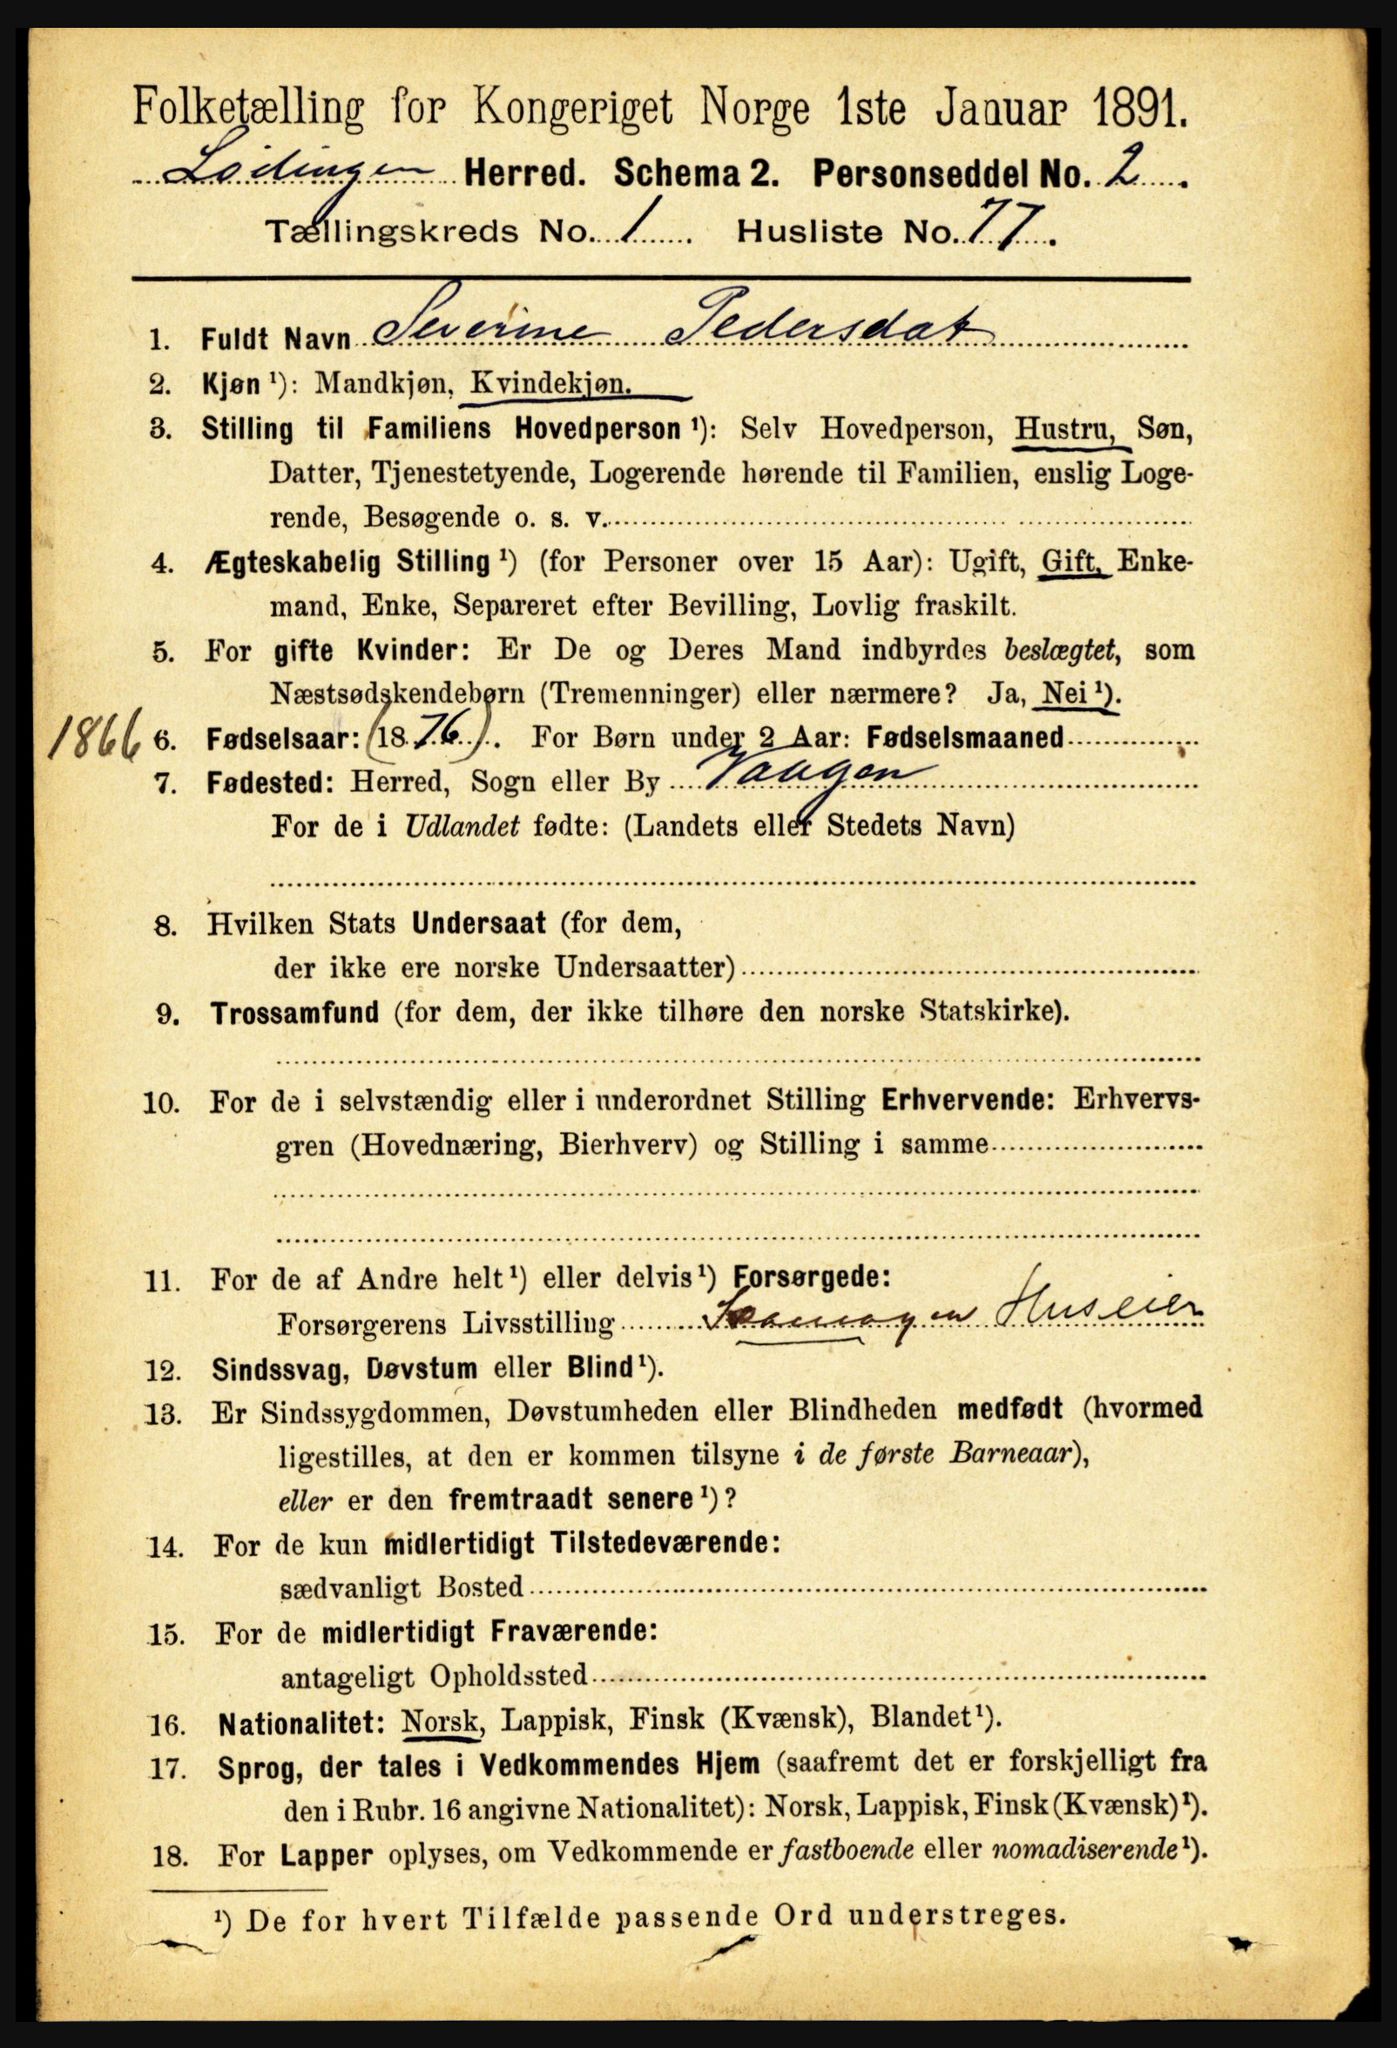 Folketælling for Kongeriget Norge 1ste Januar 1891.
Lødingen Herred. Schema 2. Personseddel No. 2.
Tællingskreds No. 1. Husliste No. 77.
1. Fuldt Navn Severine Pedersdat
2. Kjøn ¹): Mandkjøn, Kvindekjøn.
3. Stilling til Familiens Hovedperson ¹): Selv Hovedperson, Hustru, Søn,
Datter, Tjenestetyende, Logerende hørende til Familien, enslig Loge-
rende, Besøgende o. s. v.
4. Ægteskabelig Stilling ¹) (for Personer over 15 Aar): Ugift, Gift, Enke-
mand, Enke, Separeret efter Bevilling, Lovlig fraskilt.
5. For gifte Kvinder: Er De og Deres Mand indbyrdes beslægtet, som
Næstsødskendebørn (Tremenninger) eller nærmere? Ja, Nei ¹).
1866 6. Fødselsaar: (1876). For Børn under 2 Aar: Fødselsmaaned
7. Fødested: Herred, Sogn eller By Vaagen
For de i Udlandet fødte: (Landets eller Stedets Navn)
8. Hvilken Stats Undersaat (for dem,
der ikke ere norske Undersaatter)
9. Trossamfund (for dem, der ikke tilhøre den norske Statskirke).
10. For de i selvstændig eller i underordnet Stilling Erhvervende: Erhvervs-
gren (Hovednæring, Bierhverv) og Stilling i samme
11. For de af Andre helt ¹) eller delvis ¹) Forsørgede:
Forsørgerens Livsstilling Huseier
12. Sindssvag, Døvstum eller Blind ¹).
13. Er Sindssygdommen, Døvstumheden eller Blindheden medfødt (hvormed
ligestilles, at den er kommen tilsyne i de første Barneaar),
eller er den fremtraadt senere ¹)?
14. For de kun midlertidigt Tilstedeværende:
sædvanligt Bosted
15. For de midlertidigt Fraværende:
antageligt Opholdssted
16. Nationalitet: Norsk, Lappisk, Finsk (Kvænsk), Blandet ¹).
17. Sprog, der tales i Vedkommendes Hjem (saafremt det er forskjelligt fra
den i Rubr. 16 angivne Nationalitet): Norsk, Lappisk, Finsk (Kvænsk) ¹).
18. For Lapper oplyses, om Vedkommende er fastboende eller nomadiserende ¹).
¹) De for hvert Tilfælde passende Ord understreges.